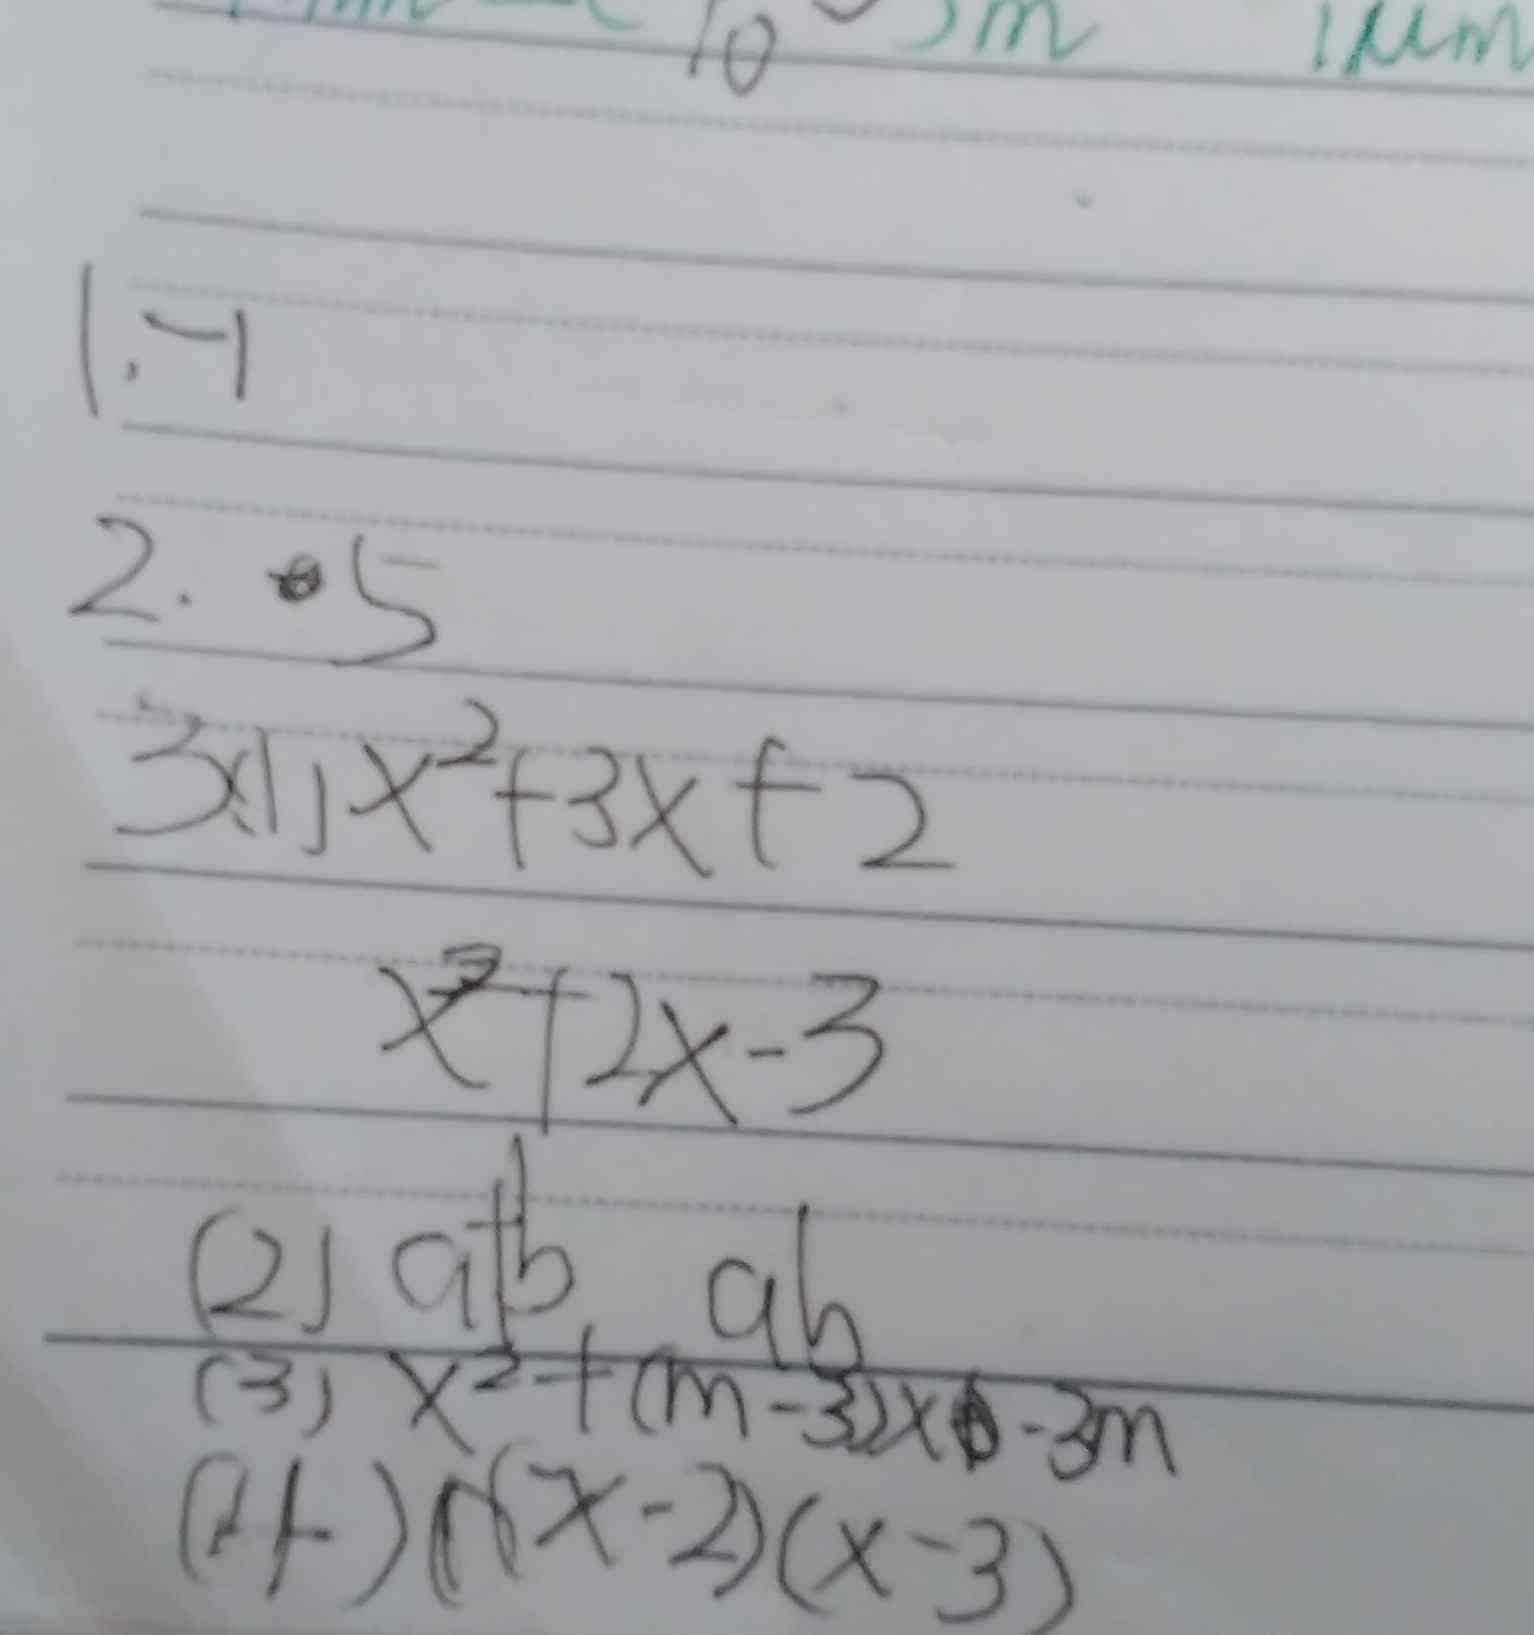 10 3m 1μm
1. -1
2. 5
3(1) x²+3x+2
x²+2x-3
(2) a+b ab
(3) x²+(m-3)x-3m
(4) (x-2)(x-3)